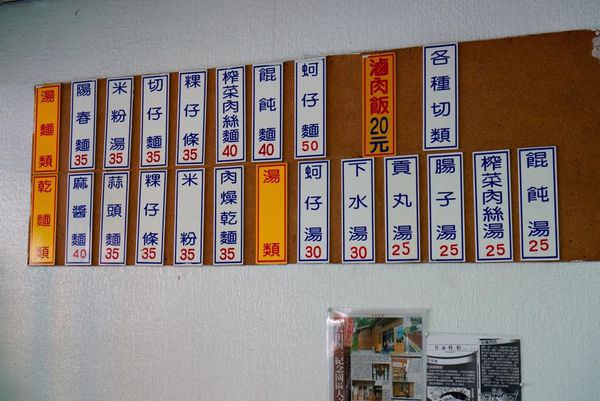 湯麵類
陽春麵 35
米粉湯 35
切仔麵 35
粿仔條 35
榨菜肉絲麵 40
餛飩麵 40
蚵仔麵 50
滷肉飯 20元
各種切類
乾麵類
麻醬麵 40
蒜頭麵 35
粿仔條 35
米粉 35
肉燥乾麵 35
湯類
蚵仔湯 30
下水湯 30
貢丸湯 25
腸子湯 25
榨菜肉絲湯 25
餛飩湯 25